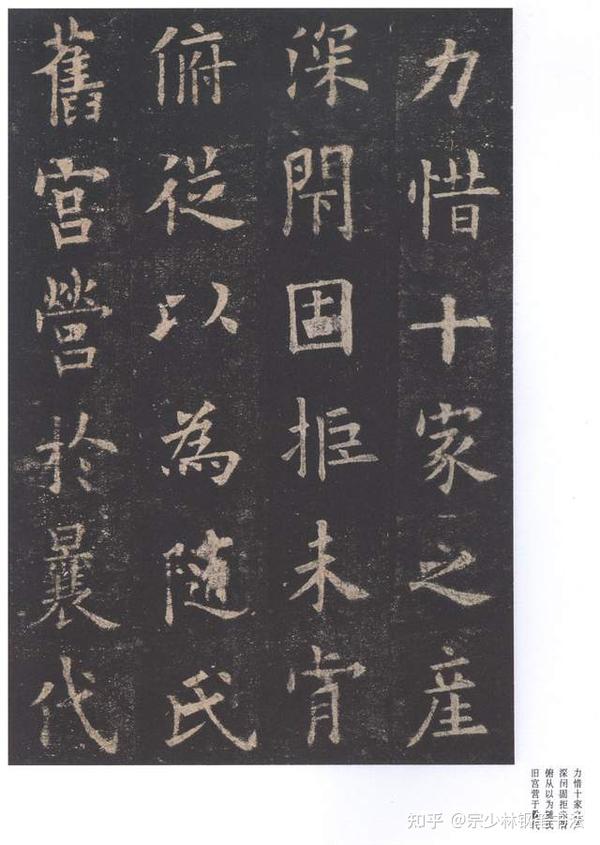 力惜十家之産
深閇固拒未肯
俯從以為隨氏
舊宮營於曩代
力惜十家之产
深闭固拒未肯
俯从以为随氏
旧宫营于曩代
知乎 @宗少林钢笔书法